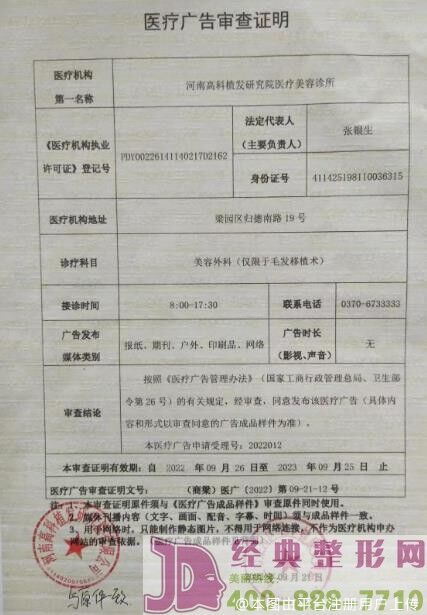 医疗广告审查证明
医疗机构
第一名称
河南高科植发研究院医疗美容诊所
《医疗机构执业
许可证》登记号
PDY00226141140217D2162
法定代表人
(主要负责人)
张银生
身份证号
411425198110036315
医疗机构地址
梁园区归德南路19号
诊疗科目
美容外科(仅限于毛发移植术)
接诊时间
8:00-17:30
联系电话
0370-6733333
广告发布
媒体类别
报纸、期刊、户外、印刷品、网络
广告时长
(影视、声音)
无
审查结论
按照《医疗广告管理办法》(国家工商行政管理总局、卫生部
令第26号)的有关规定,经审查,同意发布该医疗广告(具体内
容和形式以审查同意的广告成品样件为准)。
本医疗广告申请受理号:2022012
本审查证明有效期:自 2022 年 09 月 26 日至 2023 年 09 月 25 日 止
医疗广告审查证明文号: (商梁)医广【2022】第 09-21-12 号
注:1、本审查证明原件须与《医疗广告成品样件》审查原件同时使用。
2、媒体刊播内容(文字、画面、配音、字幕、时间)须与成品样件一致。
3、用于网络时,只能制作静态图片,不得用于网络连接,不作为医疗机构申办
网站的审查依据。
JD 经典整形网
美丽热线:
09月21日
400-889-7710
与原件一致
@本图由平台注册用户上传